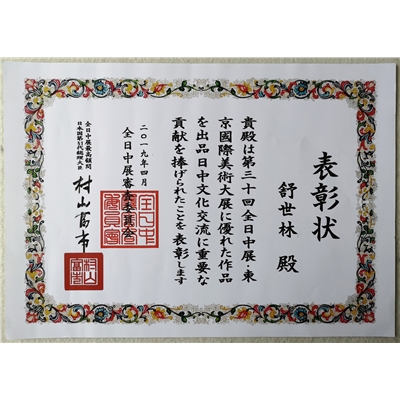 表彰状
舒世林 殿
貴殿は第三十回全日中展・東
京國際美術大展に優れた作品
を出品日中文化交流に重要な
貢献を捧げられたことを表彰します
二〇一九年四月
全日中展審査委員会
全日中展最高顧問
日本国第81代総理大臣
村山富市